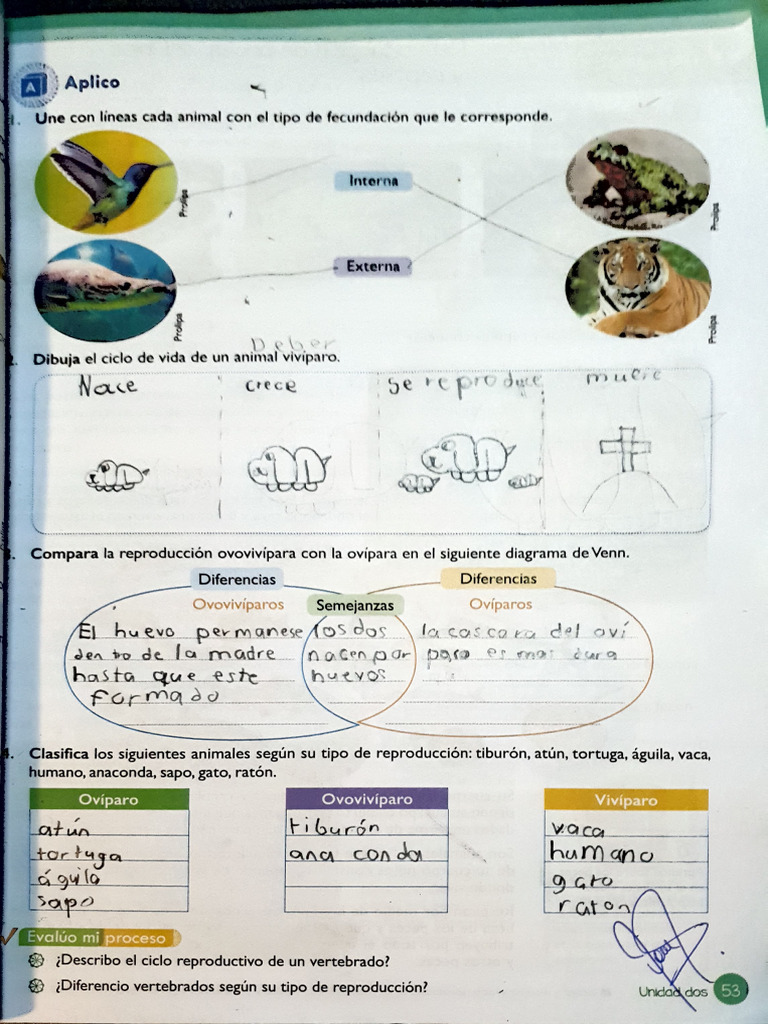 A Aplico
1. Une con líneas cada animal con el tipo de fecundación que le corresponde.
Interna
Prolipa
Prolipa
Externa
Prolipa
Prolipa
Deber
2. Dibuja el ciclo de vida de un animal vivíparo.
Nace crece se reproduce muere
3. Compara la reproducción ovovivípara con la ovípara en el siguiente diagrama de Venn.
Diferencias Diferencias
Ovovivíparos Semejanzas Ovíparos
El huevo permanese los dos la cascara del oví
dentro de la madre nacen por paro es mas dura
hasta que este huevos
formado
4. Clasifica los siguientes animales según su tipo de reproducción: tiburón, atún, tortuga, águila, vaca,
humano, anaconda, sapo, gato, ratón.
Ovíparo Ovovivíparo Vivíparo
atún tiburón vaca
tortuga ana conda humano
águila gato
sapo raton
Evalúo mi proceso
¿Describo el ciclo reproductivo de un vertebrado?
¿Diferencio vertebrados según su tipo de reproducción?
Unidad dos 53